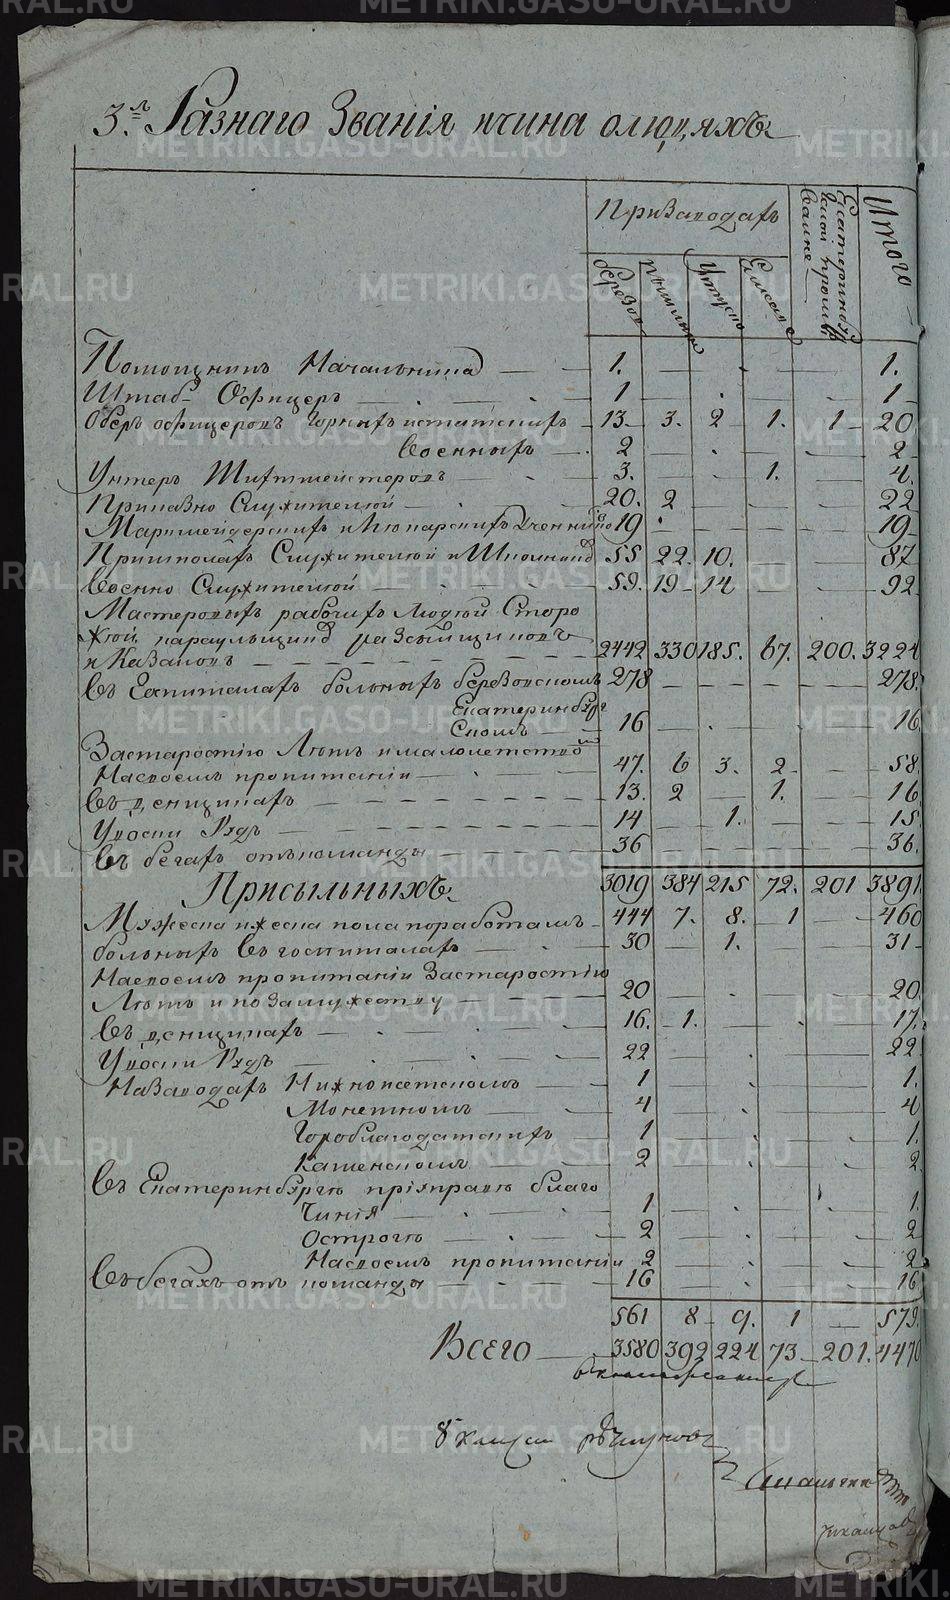 3.л Разнаго Званія и чина о людяхъ
При Заводахъ
Екатеринбургской промывалке
Итого
Березов
Пышмин
Уктус
Елисав
Помощникъ Начальника — — 1. — — — — 1.
Штаб-Офицеръ 1 — — — — 1
Обер офицеровъ Горныхъ и статскихъ 13 — 3. 2 1. 1 — 20
Военныхъ 2 — — — — 2
Унтеръ Шихтмейстеровъ 3. — — 1. — 4.
Приказно Служителей 20. 2 — — — 22
Маркшейдерскихъ и Пробирскихъ Учениковъ 19 — — — — 19
При школахъ Служителей и Школьник 55 22. 10. — — 87
Военно Служителей 59. 19 — 14 — — 92
Мастеровыхъ рабочихъ Людей Сторо
жей караульщиков разсыльщиковъ
и Казаковъ — — 2442 330 185. 67. 200. 3224
Въ Гашпиталахъ больныхъ березовскомъ 278 — — — — 278.
Екатеринбург
скомъ — 16 — — — — 16
За старостію Летъ и малолетство
На своемъ пропитаніи 47. 6 3. 2 — — 58.
Въ денщикахъ 13. 2 — 1. — 16
У воски Рудъ 14 — 1. — — 15
Въ бегахъ отъ команды 36 — — — — 36.
3019 384 215 72. 201 3891.
Присыльныхъ
Мужеска и женска пола по работамъ 444 7. 8. 1 — 460
больныхъ Въ госпиталахъ 30 — 1. — — 31
На своемъ пропитаніи За старостію
Летъ и по Замужеству 20 — — — — 20.
Въ денщикахъ 16. 1. — — — 17.
У воски Рудъ 22 — — — — 22
На Заводахъ Нижноисетскомъ 1 — — — — 1.
Монетномъ 4 — — — — 4
Гороблагодатскихъ 1 — — — — 1.
Каменскомъ 2 — — — — 2
Въ Екатеринбурге при управе благо
чинія 1 — — — — 1.
Остроге 2 — — — — 2
На своемъ пропитаніи 2 — — — — 2
Въ бегахъ отъ команды 16 — — — — 16
561 8 9. 1 — 579.
Всего — 3580 392 224 73 201. 4470
8 класса
METRIKI.GASO-URAL.RU